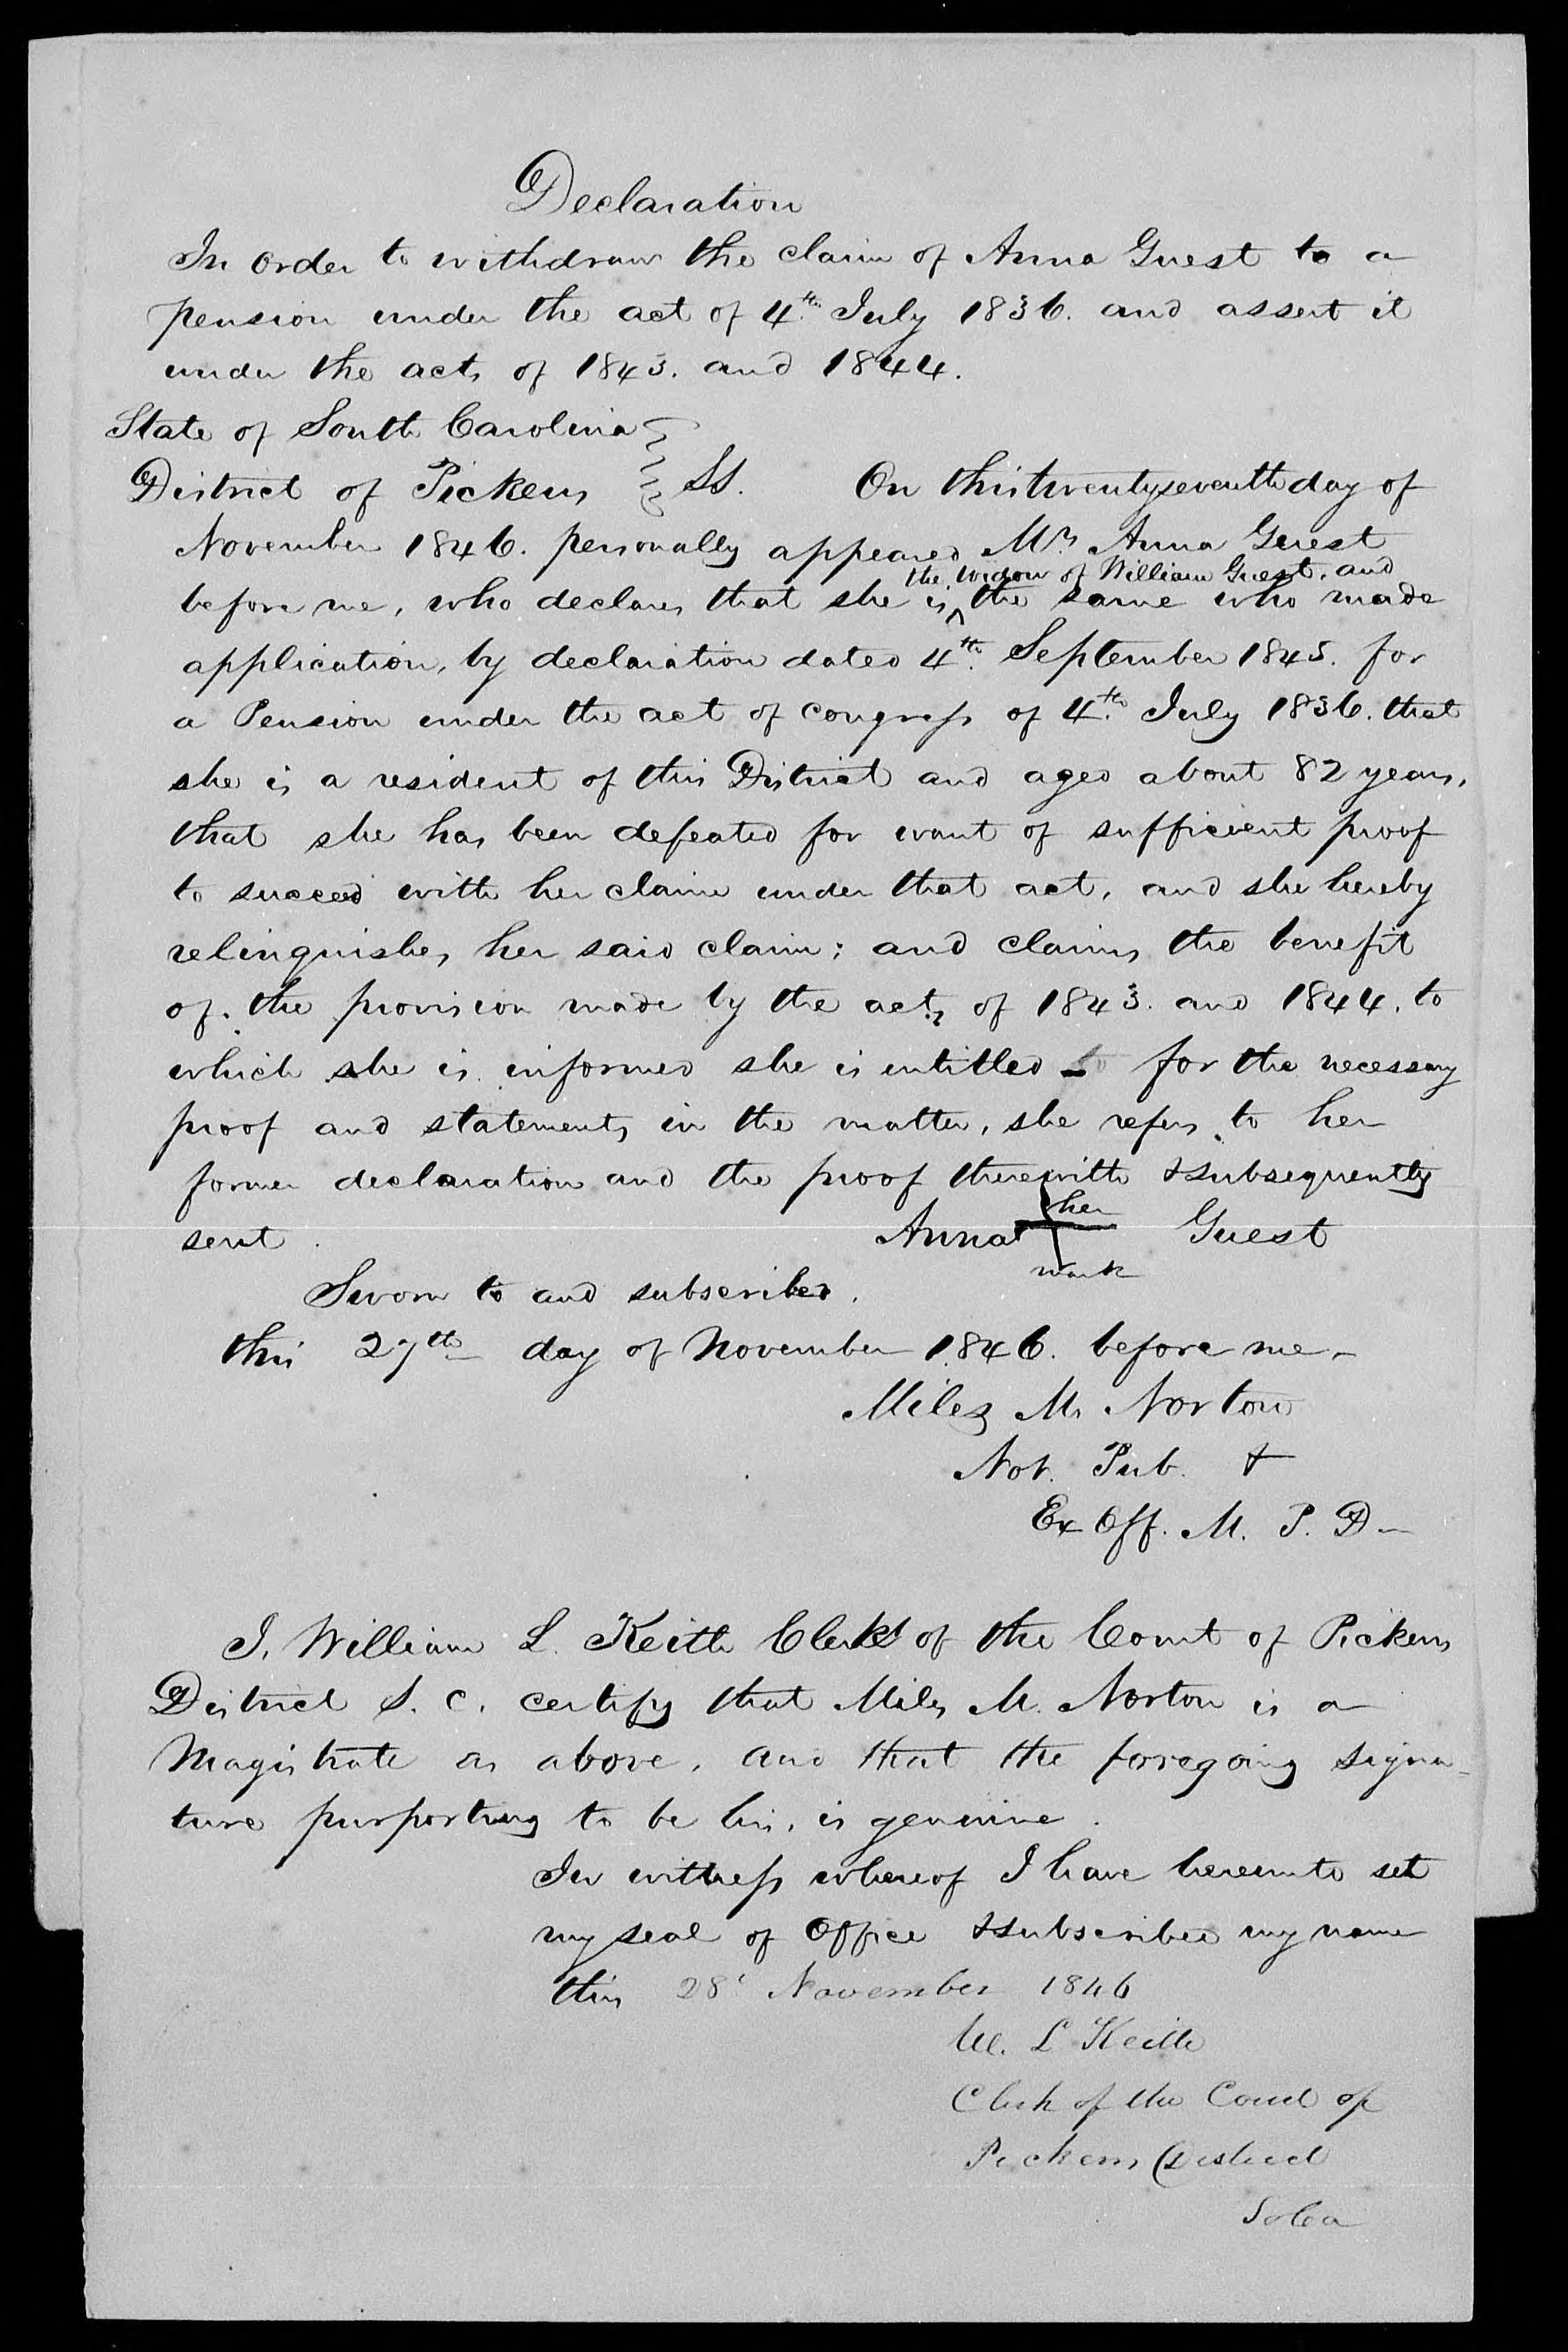 Declaration
In order to withdraw the claim of Anna Guest to a
pension under the act of 4th July 1836. and assert it
under the acts of 1843. and 1844.
State of South Carolina
District of Pickens } SS. On this twenty seventh day of
November 1846. personally appeared Mrs Anna Guest
the widow of William Guest, and
before me, who declares that she is ^ the same who made
application, by declaration dated 4th September 1845. for
a Pension under the act of congress of 4th July 1836. that
she is a resident of this District and aged about 82 years,
that she has been defeated for want of sufficient proof
to succeed with her claim under that act, and she hereby
relinquishes her said claim; and claims the benefit
of. the provision made by the acts of 1843. and 1844, to
which she is informed she is entitled for the necessary
proof and statements in the matter, she refers to her
former declaration and the proof therewith & subsequently
sent. Anna her + mark Guest
Sworn to and subscribed.
this 27th day of November 1846. before me-
Miles M. Norton
Not. Pub. &
Ex Off. M. P. D-
I, William L. Keith Clerk of the Court of Pickens
District S. C. certify that Miles M. Norton is a
Magistrate as above, and that the foregoing signa-
ture purporting to be his, is genuine.
In witness whereof I have hereunto set
my seal of Office & subscribed my name
this 28' November 1846
W. L Keith
Clerk of the Court of
Pickens District
So Ca